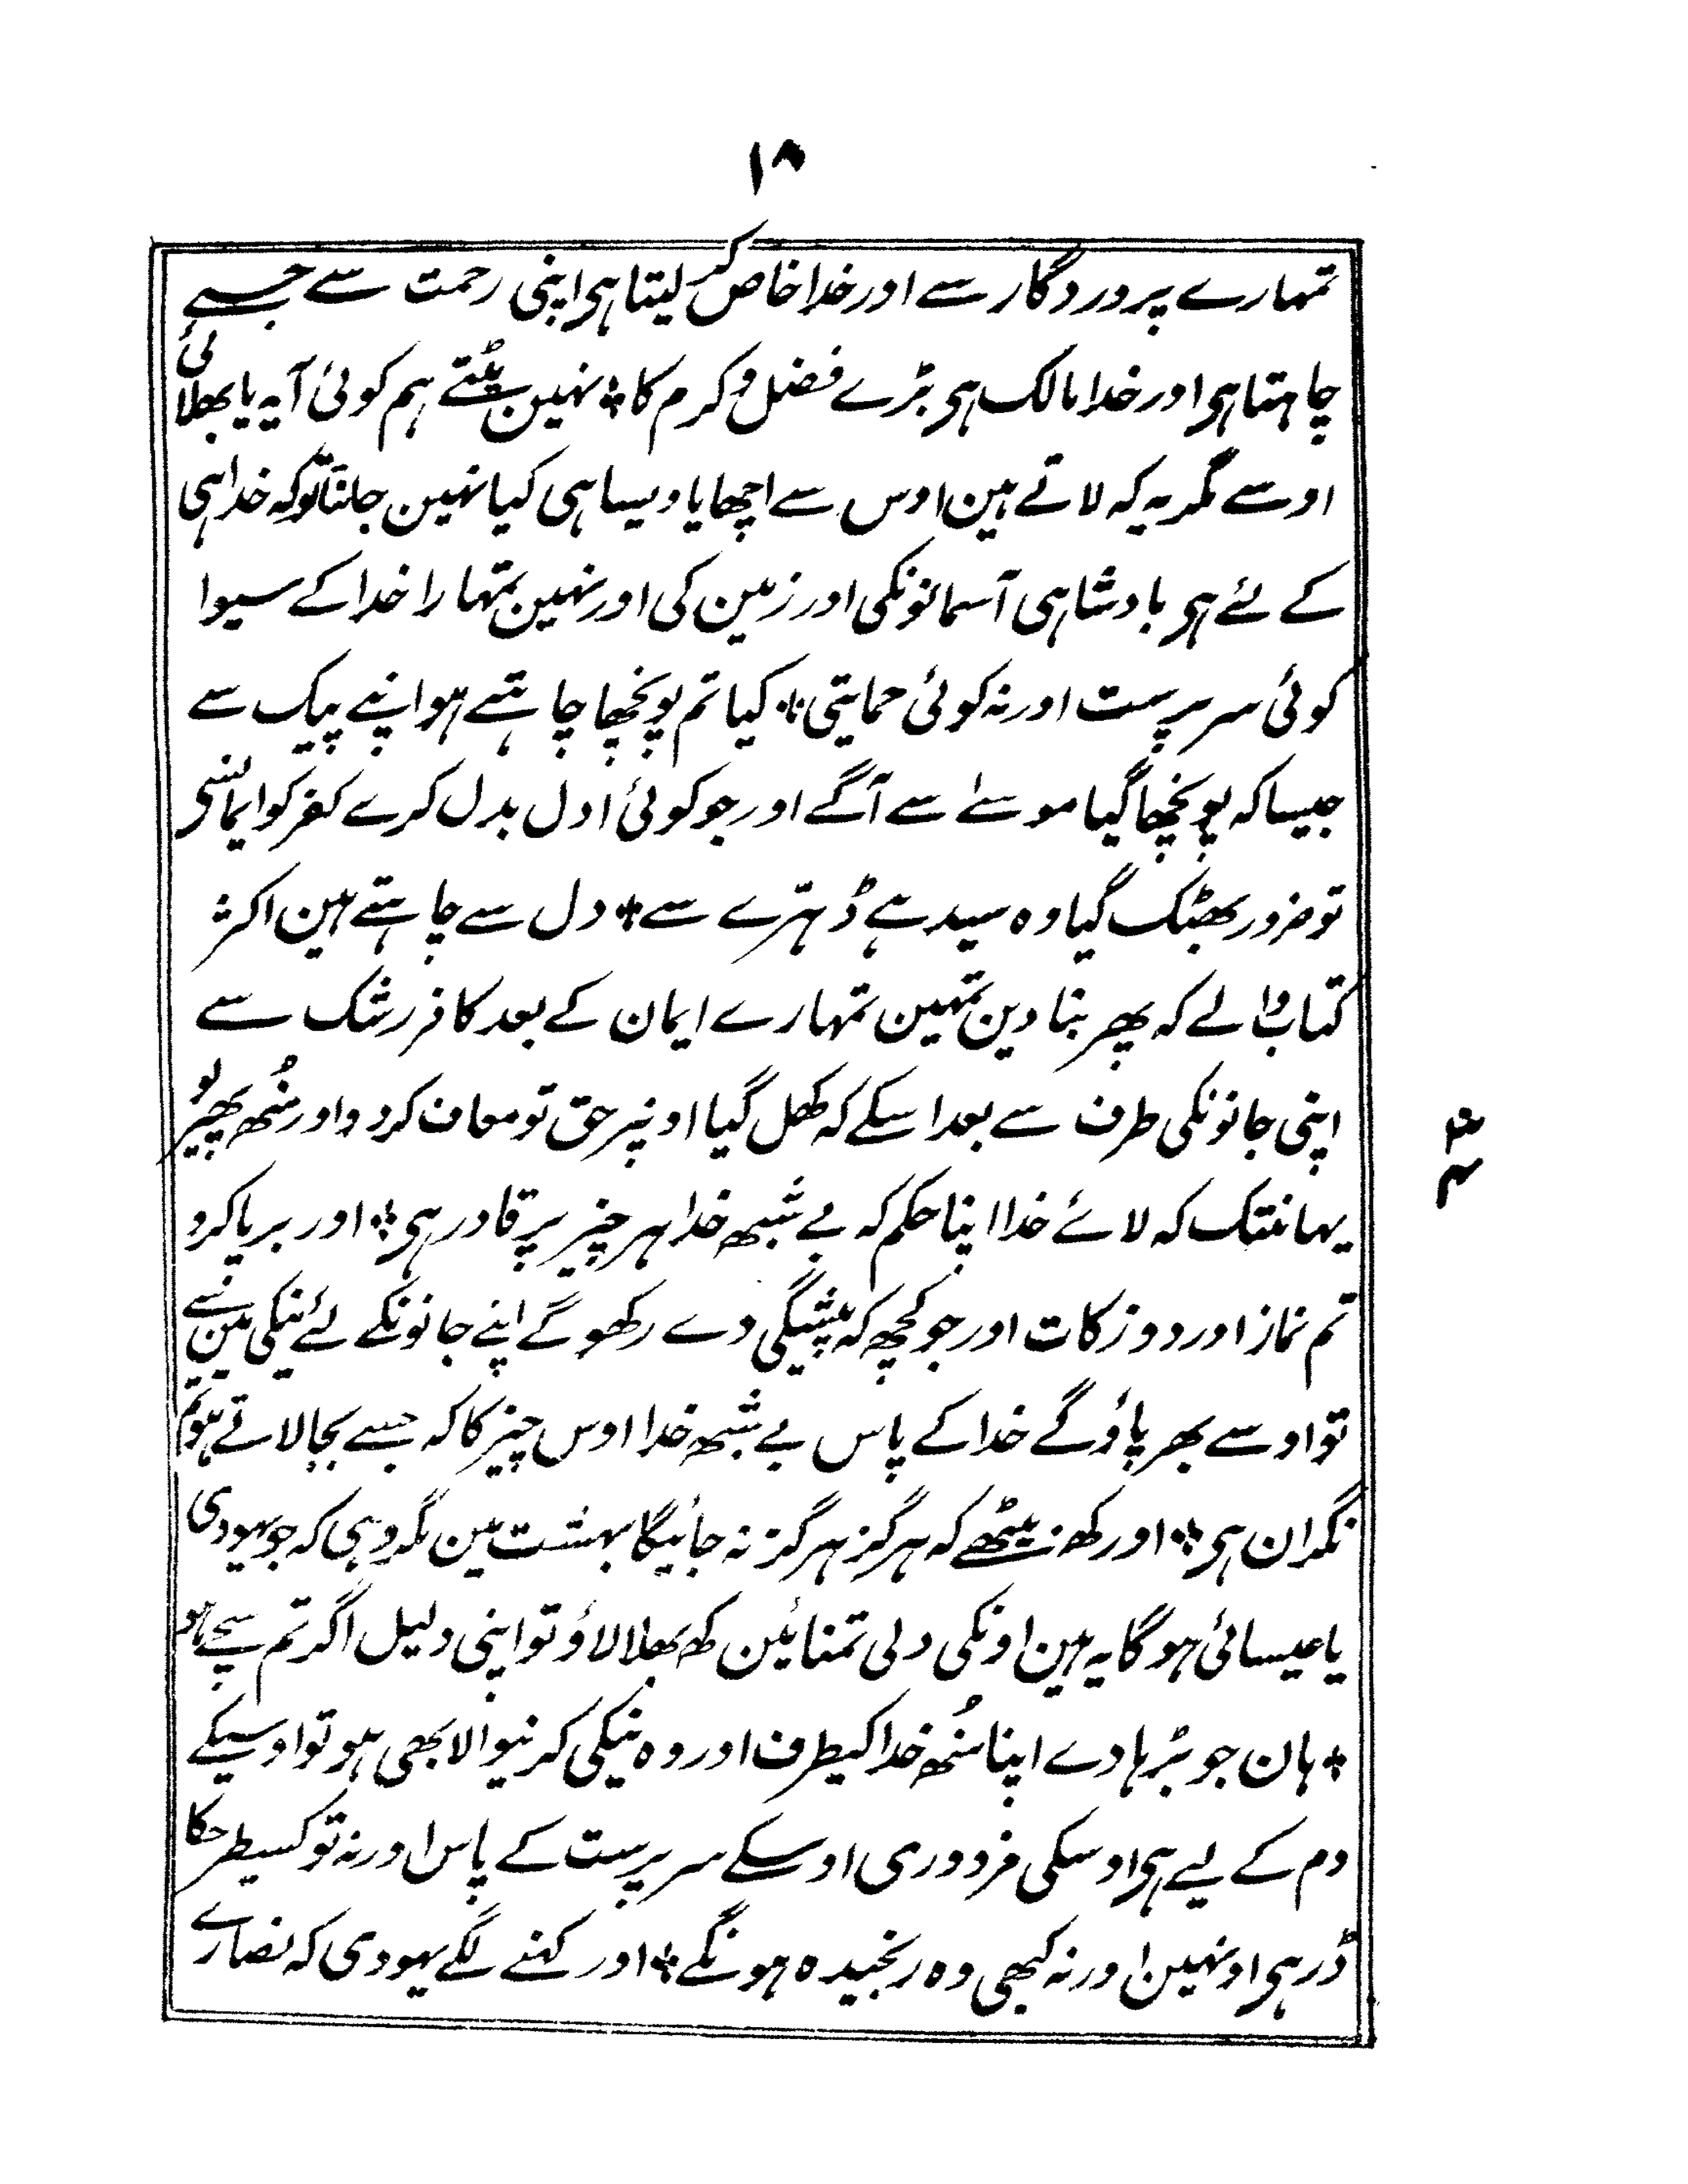 ١٨
تمہارے پروردگار سے اور خدا خاص کر لیتا ہی اپنی رحمت سے جسے
چاہتا ہی اور خدا مالک ہی بڑے فضل و کرم کا ٭ نہین میٹتے ہم کوئی آیہ یا بھلائی
اوسے مگر یہ کہ لاتے ہین اوس سے اچھا یا ویسا ہی کیا نہین جانتا تو کہ خدا ہی
کے لئے ہی بادشاہی آسمانونکی اور زمین کی اور نہین تمہارا خدا کے سیوا
کوئی سرپرست اور نہ کوئی حمایتی ٭ کیا تم پونچھا چاہتے ہو اپنے پیک سے
جیسا کہ پونچھا گیا موسے سے آگے اور جو کوئی ادل بدل کرے کفر کو ایمانسی
تو ضرور بھٹک گیا وہ سیدہے ڈہرّے سے ٭ دل سے چاہتے ہین اکثر
کتاب والے کہ پھر بنا دین تمہین تمہارے ایمان کے بعد کافر رشک سے
اپنی جانونکی طرف سے بعد اسکے کہ کھل گیا اونپر حق تو معاف کردو اور منُھ پھیر لو
یہانتک کہ لائے خدا اپنا حکم کہ بے شبھ خدا ہر چیز پر قادر ہی ٭ اور برپا کرو
تم نماز اور دو زکات اور جو کچھ کہ پیشگی دے رکھو گے اپنے جانونکے لئے نیکی مین سے
تو اوسے بھر پاؤگے خدا کے پاس بے شبھ خدا اوس چیز کا کہ جسے بجا لاتے ہو تم
نگران ہی ٭ اور کھ بیٹھے کہ ہرگز ہرگز نہ جائیگا بہشت مین مگر وہی کہ جو یہودی
یا عیسائی ہوگا یہ ہین اونکی دلی تمنائین کھ بھلا لاؤ تو اپنی دلیل اگر تم سچے ہو
٭ ہان جو بڑہا دے اپنا منُھ خدا کیطرف اور وہ نیکی کرنیوالا بھی ہو تو اوسیکے
دم کے لیے ہی اوسکی مزدوری اوسکے سرپرست کے پاس اور نہ تو کسیطرحکا
ڈر ہی اونہین اور نہ کبھی وہ رنجیدہ ہونگے ٭ اور کہنے لگے یہودی کہ نصارے